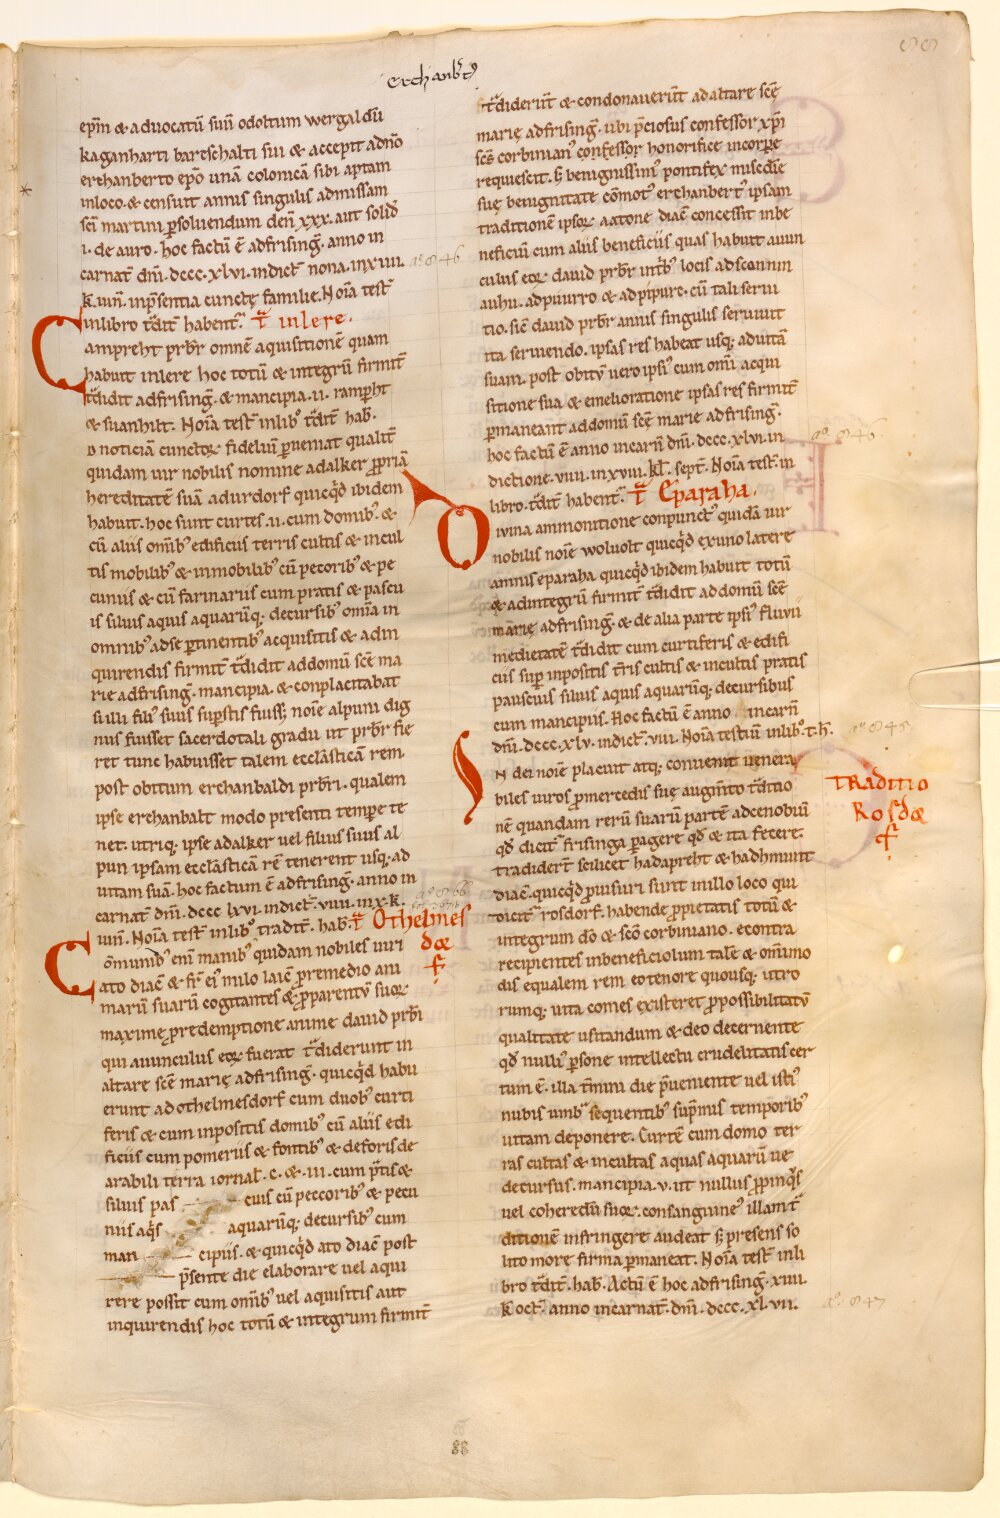 erchanbt᷒
88
epm̄ & aduocatū suū odoltum wergaldū
kaganharti bareschalti sui & accepit adn̄o
erchanberto ep̄o unā colonicā sibi aptam
inloco. & censuit annis singulis admissam
sc̄i martini ꝑsoluendum den̄ xxx. aut solid̄
i. de auro. hoc factū ē adfrisinḡ. anno in
carnat̄ dn̄i. dccc. xlvi. indict̄ nona. inxiiii.
aº 846
k. iun̄. inp̄sentia cunctę familie. Noīa test̄
inlibro t̄dit̄ habent᷑. T̄ inlere.
Campreht pr̄br omnē aquisitionē quam
habuit inlere hoc totū & integrū firmit̄
t̄didit adfrisinḡ. & mancipia. ii. rampht̄
& suanhilt. Noīa test̄ inlib᷒ t̄dit̄ hab̄.
D noticiā cunctoꝝ fidelium ꝑueniat qualit̄
quidam uir nobilis nomine adalker ꝓpriā
hereditatē suā adurdorf quicqd̄ ibidem
habuit. hoc sunt curtes. ii. cum domib᷒ &
cū aliis om̄ib᷒ edificiis terris cultis & incul
tis mobilib᷒ & inmobilib᷒ cū pecorib᷒ & pe
cuniis & cū farinariis cum pratis & pascu
is siluis aquis aquarūq; decursib᷒ om̄ia in
omnib᷒ adse ꝑtinentib᷒ acquisitis & adin
quirendis firmit̄ t̄didit addomū scē ma
rie adfrisinḡ. mancipia. & conplacitabat
si illi fili᷒ suus supstis fuiss; noīe alpuni dig
nus fuisset sacerdotali gradu ut pr̄br fie
ret tunc habuisset talem eccl̄asticā rem
post obitum erchanbaldi pr̄bri. qualem
ipse erchanbalt modo presenti tempe te
net. utriq; ipse adalker uel filius suus al
pun ipsam eccl̄asticā rē tenerent usq; ad
uitam suā. hoc factum ē adfrisinḡ. anno in
carnat̄ dn̄i. dccc lxvi. indict̄. viiii. inx. k.
aº 866
iun̄. Noīa test̄ inlib᷒ tradit̄. hab̄. T̄ Othelmes
dorf
Cōmunib᷒ eni manib᷒ quidam nobiles uiri
ato diac̄ & fr̄ ei᷒ milo laic̄ ꝓremedio ani
marū suarū cogitantes & ꝓparentū suoꝝ
maxime ꝓredemptione anime dauid pr̄bri
qui auunculus eoꝝ fuerat t̄diderunt in
altare scē marię adfrisinḡ. quicqd̄ habu
erunt adothelmesdorf cum duob᷒ curti
feris & cum inpositis domib᷒ cū aliis edi
ficiis cum pomeriis & fontib᷒ & deforis de
arabili terra iornal̄. c. & . iii. cum p̄tis &
siluis pas cuis cū peccorib᷒ & pecu
niis aq̄s aquarūq; decursib᷒ cum
man cipiis. & quicqd̄ ato diac̄ post
p̄sente die elaborare uel aqui
rere possit cum omib᷒ uel aquisitis aut
inquirendis hoc totū & integrum firmit̄
t̄diderūt & condonauerūt adaltare scē
marię adfrisinḡ. ubi p̄ciosus confessor xp̄i
scs̄ corbinian᷒ confessor honorifice incorpe
requiescit. S; benignissim᷒ pontifex misc̄die
suę benignitate cōmot᷒ erchanbert᷒ ipsam
traditionē ipsoꝝ aatone diac̄ concessit inbe
neficiū cum aliis beneficiis quas habuit auun
culus eoꝝ dauid pr̄br intib᷒ locis adsconin
auhu. adpiurro & adpipure. cū tali serui
tio. sic̄ dauid pr̄br annis singulis seruiuit
ita seruiendo. ipsas res habeat usq; aduitā
suam. post obitū uero ipsi᷒ cum omi acqui
sitione sua & emelioratione ipsas res firmit̄
ꝑmaneant addomū scē marie adfrisinḡ.
hoc factū ē anno incarn̄ dn̄i. dccc. xlvi. in
aº 846
dictione. viiii. inxviii. kl̄. sept̄. Noīa test̄ in
libro. t̄dit̄ habent᷑. T̄ Eparaha.
Diuina ammonitione conpunct᷒ quidā uir
nobilis noīe woluolt quicqd̄ exuno latere
amnis eparaha quicqd̄ ibidem habuit totū
& adintegrū firmit̄ t̄didit addomū scē
marię adfrisinḡ. & de alia parte ipsi᷒ fluuii
medietatē t̄didit cum curtiferis & edifi
ciis sup inpositis t̄ris cultis & incultis pratis
pascuis siluis aquis aquarūq; decursibus
cum mancipiis. Hoc factū ē anno incarn̄
dn̄i. dccc. xlv. indict̄. viii. Noīa testiū inlib᷒. t. h̄.
aº 845
IN dei noīe placuit atq; conuenit uenera
biles uiros ꝓmercedis suę augm̄to t̄ditio
nē quandam rerū suarū partē adcenobiū
qd̄ dicit᷑ frisinga ꝑagere qd̄ & ita fecere.
tradider̄t scilicet hadapreht & hadhmunt
diac̄. quicqd̄ puisuri sunt inillo loco qui
dicit᷑ rosdorf. habende ꝓprietatis totū &
integrum dō & sc̄o corbiniano. econtra
recipientes inbeneficiolum talē & om̄imo
dis equalem rem eotenore quousq; utro
rumq; uita comes existeret ꝓpossibilitatū
qualitate usitandum & deo decernente
qd̄ nulli᷒ ꝑsone intellectu crudelitatis cer
tum ē. illa t̄mini die p̄ueniente uel isti᷒
nubis umb᷒ sequentib᷒ supmus temporib᷒
uitam deponere. Curtē cum domo ter
ras cultas & incultas aquas aquarū ue
decursus. mancipia. v. ut nullus ꝓpinq᷒s
uel coheredū suoꝝ. consanguine᷒ illam t̄
ditionē infringere audeat s; presens so
lito more firma ꝑmaneat. Noīa test̄ inli
bro t̄dit̄. hab̄. Actū ē hoc adfrisinḡ. xiiii.
k oct̄. anno incarnat̄. dn̄i. dccc. xl. vii.
aº. 847
TRaditio
Rosdorf
88